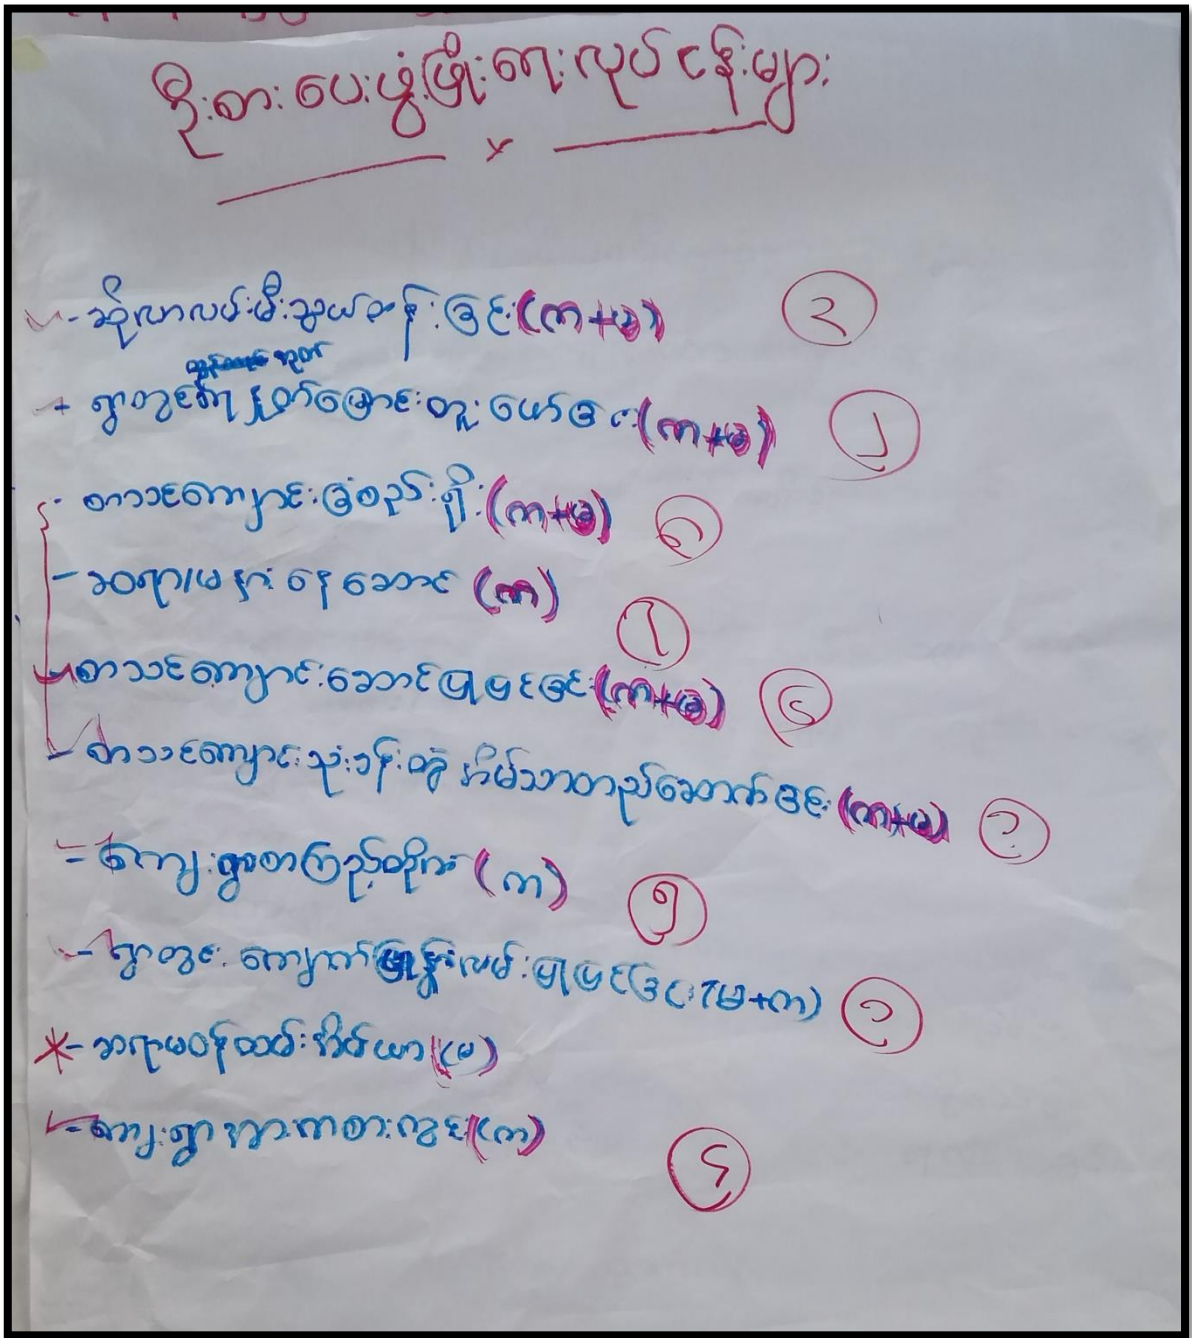 ဦးစားပေးဖွံ့ဖြိုးရေးလုပ်ငန်းများ
x
- ဆိုလာလမ်းမီးသွယ်တန်းခြင်း (က+မ) ၃
+ ရွာတွင်း မြောင်းတူးဖော်ခြင်း (က+မ) ၂
- စာသင်ကျောင်းခြံစည်းရိုး (က+မ) ၆
- ဆရာ/မများနေဆောင် (က) ၇
- စာသင်ကျောင်းဆောင်ပြုပြင်ခြင်း (က+မ)
- စာသင်ကျောင်းသုံးခန်းတွဲ အိမ်သာတည်ဆောက်ခြင်း (က+မ)
- ကျေးရွာစာကြည့်တိုက် (က) ၅
- ရွာတွင်း ကျောက် လမ်းပြုပြင်ခြင်း (မ+က)
* - ဆရာမဝန်ထမ်းအိမ်ယာ (မ)
- ကျေးရွာအားကစားကွင်း (က) ၄